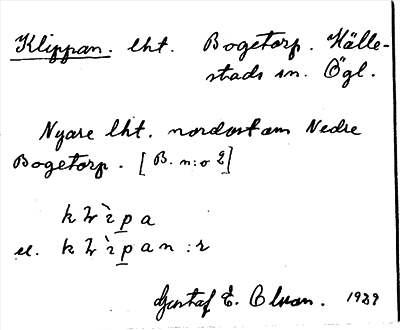 Klippan. lht. Bogetorp. Hälle-
stads sn. Ögl.
Nyare lht. nordost om Nedre
Bogetorp. [B. n:o 2]
k l i p a
el. k l i p a n : r
Gustaf E. Olson. 1929